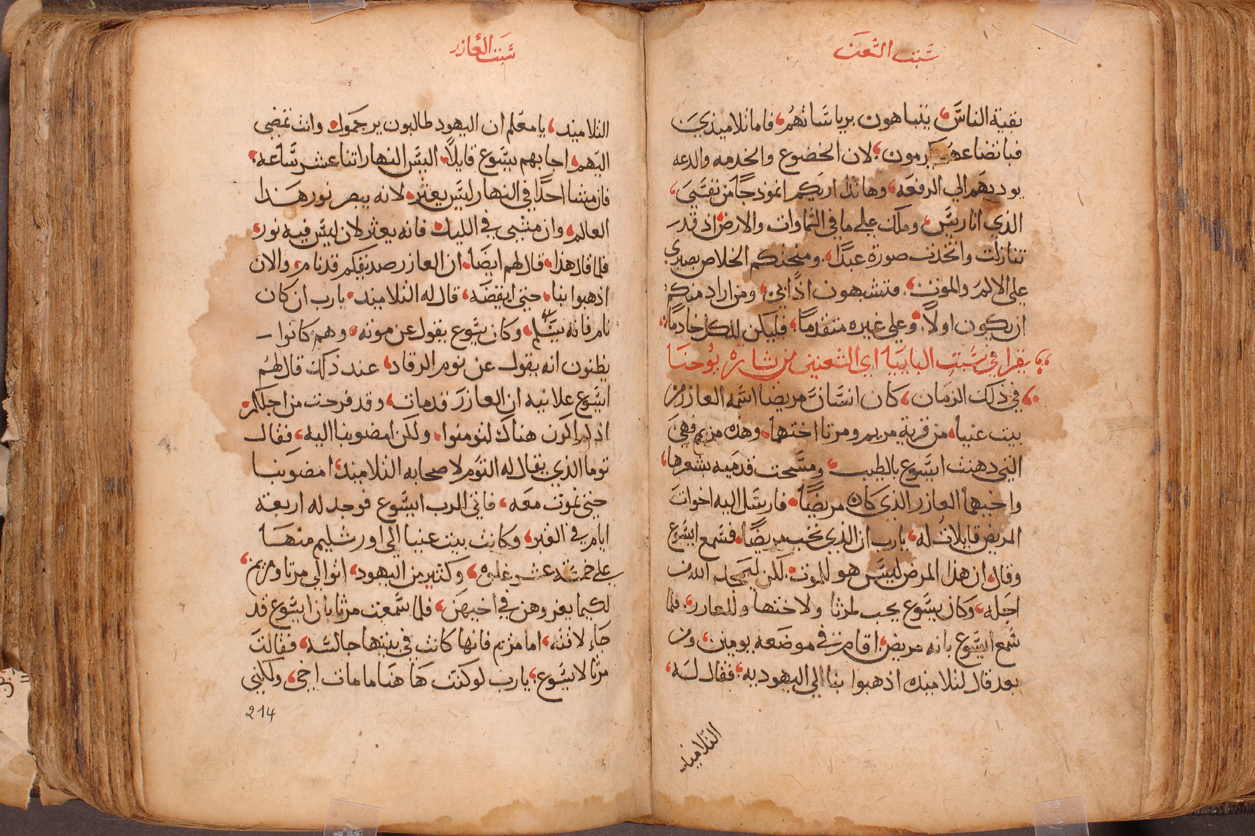 سبت الشعنين
بقية الناس يتباهون برياساتهم فاما تلاميذي
فباتضاعهم يكرمون لان الخضوع والخدمه والدعه
يوديهم الي الرفعه وهانذا اريكم انموذجا من نفسي
الذي انا ريس وملك علي ما في السماوات والارض اذ قد
تنازلت واتخذت صورة عبدا ومنحتكم الخلاص بصبري
علي الالم والموت فتشبهون اذا بي ومن اراد منكم
ان يكون اولا وعلي غيره متقدما فليكن للكل خادما
يقرا في سبت البابيا اي الشعنين من بشارة يوحنا
في ذلك الزمان كان انسان مريضا اسمه العازر من
بيت عنيا من قرية مريم ومرتا اختها وهذه مريم فهي
التي دهنت ايسوع بالطيب ومسحت قدميه بشعرها
واخيها العازر الذي كان مريضا فارسل اليه اخوات
المريض قايلات له يارب ان الذي تحب مريضا فسمع ايسوع
وقال ان هذا المرض ليس هو للموت لكن ليمجد الله من
اجله وكان يسوع يحب لمرتا ولاختها وللعازر فلما
سمع ايسوع بانه مريض اقام في موضعه يومين ومن
بعد قال لتلاميذه اذهبوا بنا الي اليهوديه فقال له
التلاميذ
سبت العازر
التلاميذ يا معلم ان اليهود طالبون يرجموك وانت تمضي
اليهم اجابهم يسوع قايلا اليس النهار اتنا عشر ساعه
فان مشا احدا في النهار ليس يعثر لانه يبصر نور هذا
العالم وان مشي في الليل فانه يعثر لان ليس فيه نور
فلما قال هذا قال لهم ايضا ان العازر صديقكم قد نام والان
اذهبوا بنا حتي ايقضه قال له التلاميذ يارب ان كان
نام فانه يسلم وكان يسوع يقول عن موته وهم كانوا
يظنون انه يقول عن نوم الرقاد عند ذلك قال لهم
ايسوع علانية ان العازر قد مات وقد فرحت من اجلكم
اذ لم اكون هناك لتومنوا ولكن امضوا بنا اليه فقال
توما الذي يقال له التوم لاصحابه التلاميذ امضو بنا
حتي نموت معه فاتي الرب ايسوع فوجد له اربعة
ايام في القبر وكانت بيت عنيا الي اورشليم منها
علي خمسة عشر غلوه وكثير من اليهود اتوا الي مرتا ومريم
لكيما يعزوهن في اخيهن فلما سمعت مرتا بان ايسوع قد
جاء لاقته اما مريم فانها كانت في بيتها جالسه فقالت
مرتا لايسوع يارب لو كنت ها هنا ما مات اخي ولكنني
214